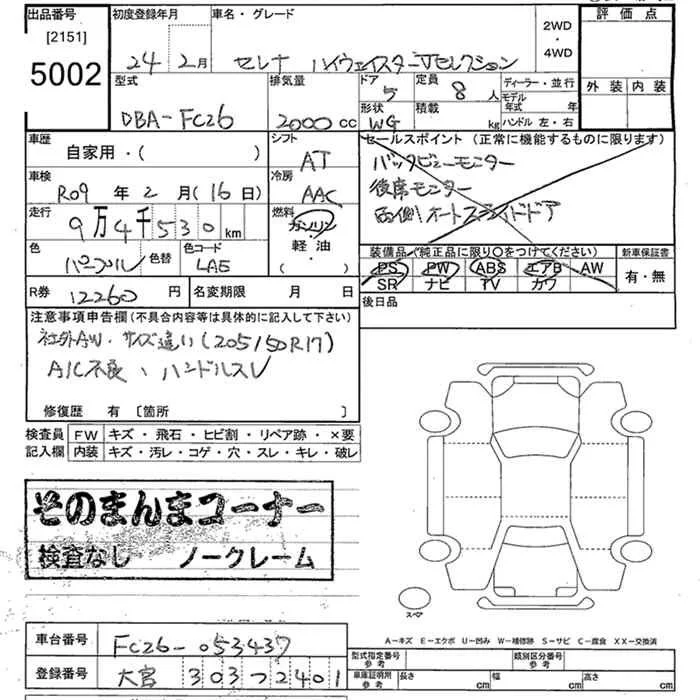 出品番号
[2151]
5002
初度登録年月
24 2月
車名・グレード
セレナ ハイウェイスターVセレクション
2WD
・
4WD
評価点
外装 内装
型式
DBA-FC26
排気量
2000 cc
ドア
5
定員
8 人
形状
WG
積載
kg
ディーラー・並行
モデル年式 年
ハンドル 左・右
車歴
自家用・( )
シフト
AT
車検
R09 年 2 月 (16 日)
冷房
AAC
走行
9万4千530 km
燃料
ガソリン
軽・油
( )
色
パープル
色替
色コード
LAE
R券 12260 円
名変期限 月 日
セールスポイント (正常に機能するものに限ります)
バックビューモニター
後席モニター
両側オートスライドドア
装備品(純正品に限り○をつけてください)
PS PW ABS エアB AW
SR ナビ TV カワ
新車保証書
有・無
後日品
注意事項申告欄(不具合内容等は具体的に記入して下さい)
社外AW・サイズ違い(205/50R17)
A/C不良、ハンドルスレ
修復歴 有 [箇所 ]
検査員記入欄
FW キズ・飛石・ヒビ割・リペア跡・×要
内装 キズ・汚レ・コゲ・穴・スレ・キレ・破レ
そのまんまコーナー
検査なし ノークレーム
スペア
A－キズ E－エクボ U－凹み W－補修跡 S－サビ C－腐食 XX－交換済
車台番号 FC26-053437
登録番号 大宮 303つ2401
型式指定番号
参考
類別区分番号
参考
車庫証明用
参考
長さ cm 幅 cm 高さ cm